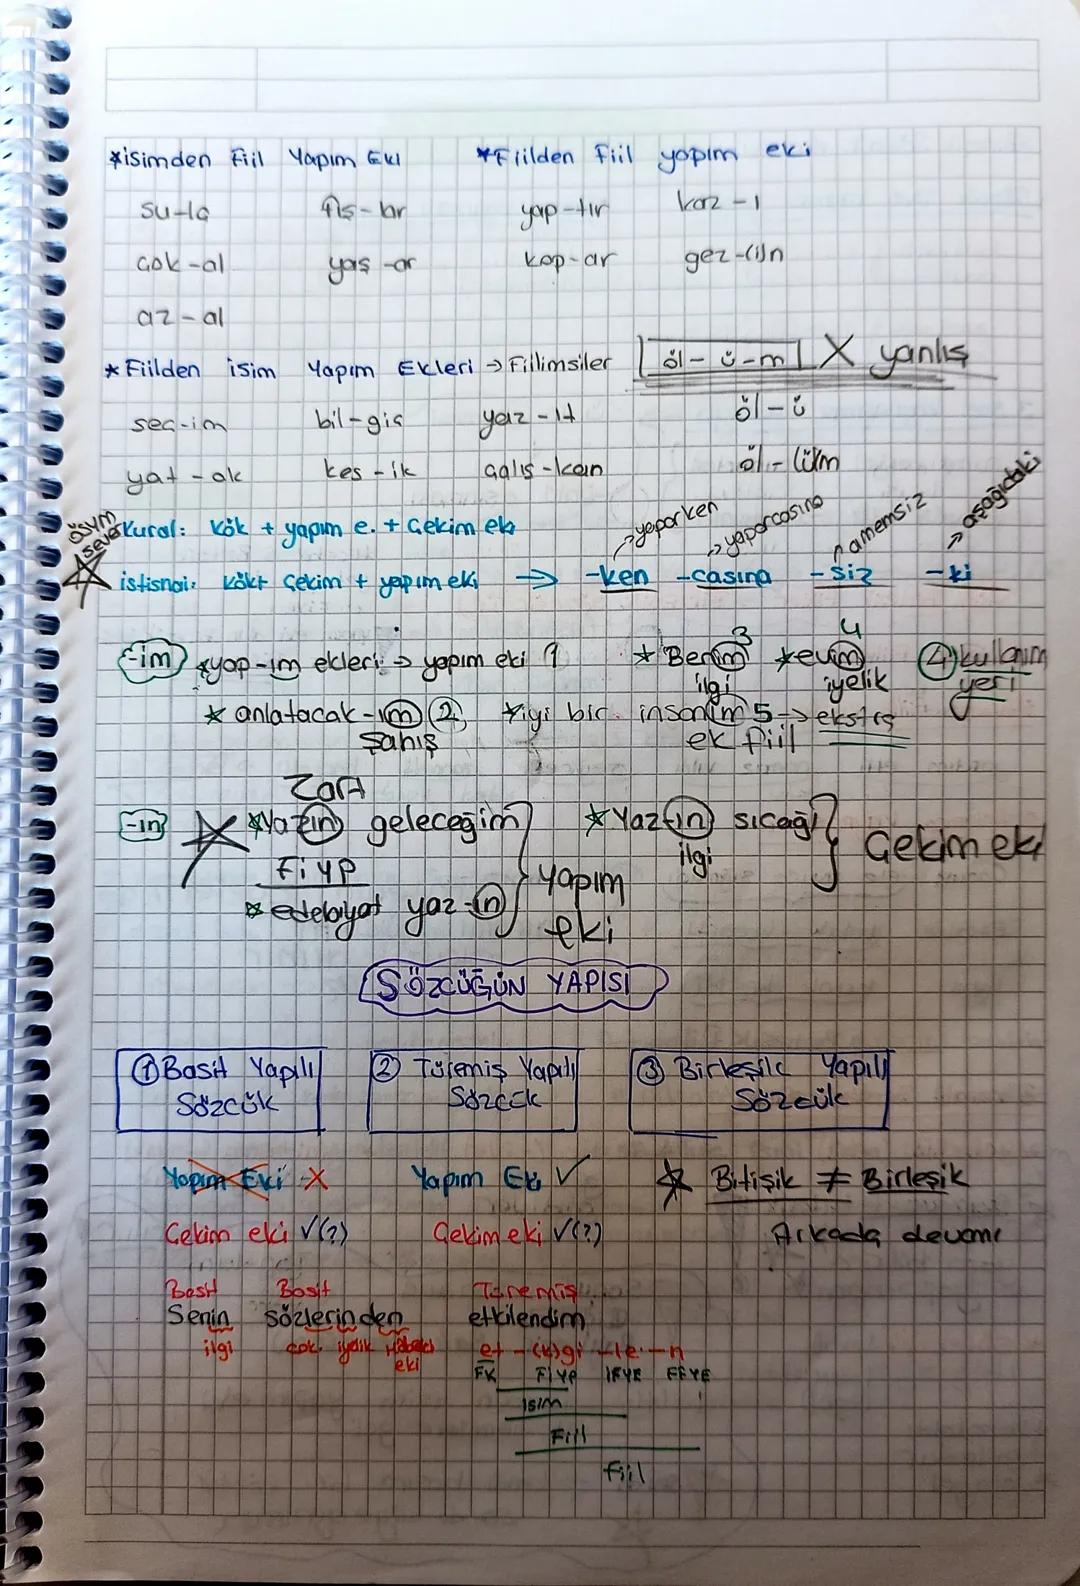 *isimden Fiil Yapım Eki *Fiilden Fiil yapım eki
su-la fış-kır yap-tır kaz-ı
çok-al yaş-ar kop-ar gez-(i)n
az-al
*Fiilden isim Yapım Ekleri → Fiilimsiler öl-ü-m X yanlış
seç-im bil-giç yaz-ıt öl-ü
yat-ak kes-ik çalış-kan öl-(ü)m
ösym sever
Kural: kök + yapım e. + Çekim eki
→yaparken →yaparcasına →amemsiz →aşağıdaki
istisnai: kök+ çekim + yapım eki → -ken -casına -siz -ki
-im *yap-ım ekleri → yapım eki 1 *Benim 3 *evim 4 4 kullanım yeri
ilgi iyelik
*anlatacak-ım 2 *iyi bir insanım 5 → ekstra
şahıs ek fiil
Zarf
-ın *Yazın geleceğim *Yaz-ın sıcağı Çekim eki
FiYP ilgi
*edebiyat yaz-ın yapım eki
SÖZCÜĞÜN YAPISI
1 Basit Yapılı Sözcük
2 Türemiş Yapılı Sözcük
3 Birleşik Yapılı Sözcük
Yapım Eki X Yapım Eki ✓ Bitişik ≠ Birleşik
Çekim eki ✓(?) Çekim eki ✓(?) Arkada devamı
Basit Basit Türemiş
Senin sözlerinden etkilendim
ilgi çok. iyelik eki et-(k)i-le-n
FK FİYP İFYE FFYE
isim
Fiil
fiil